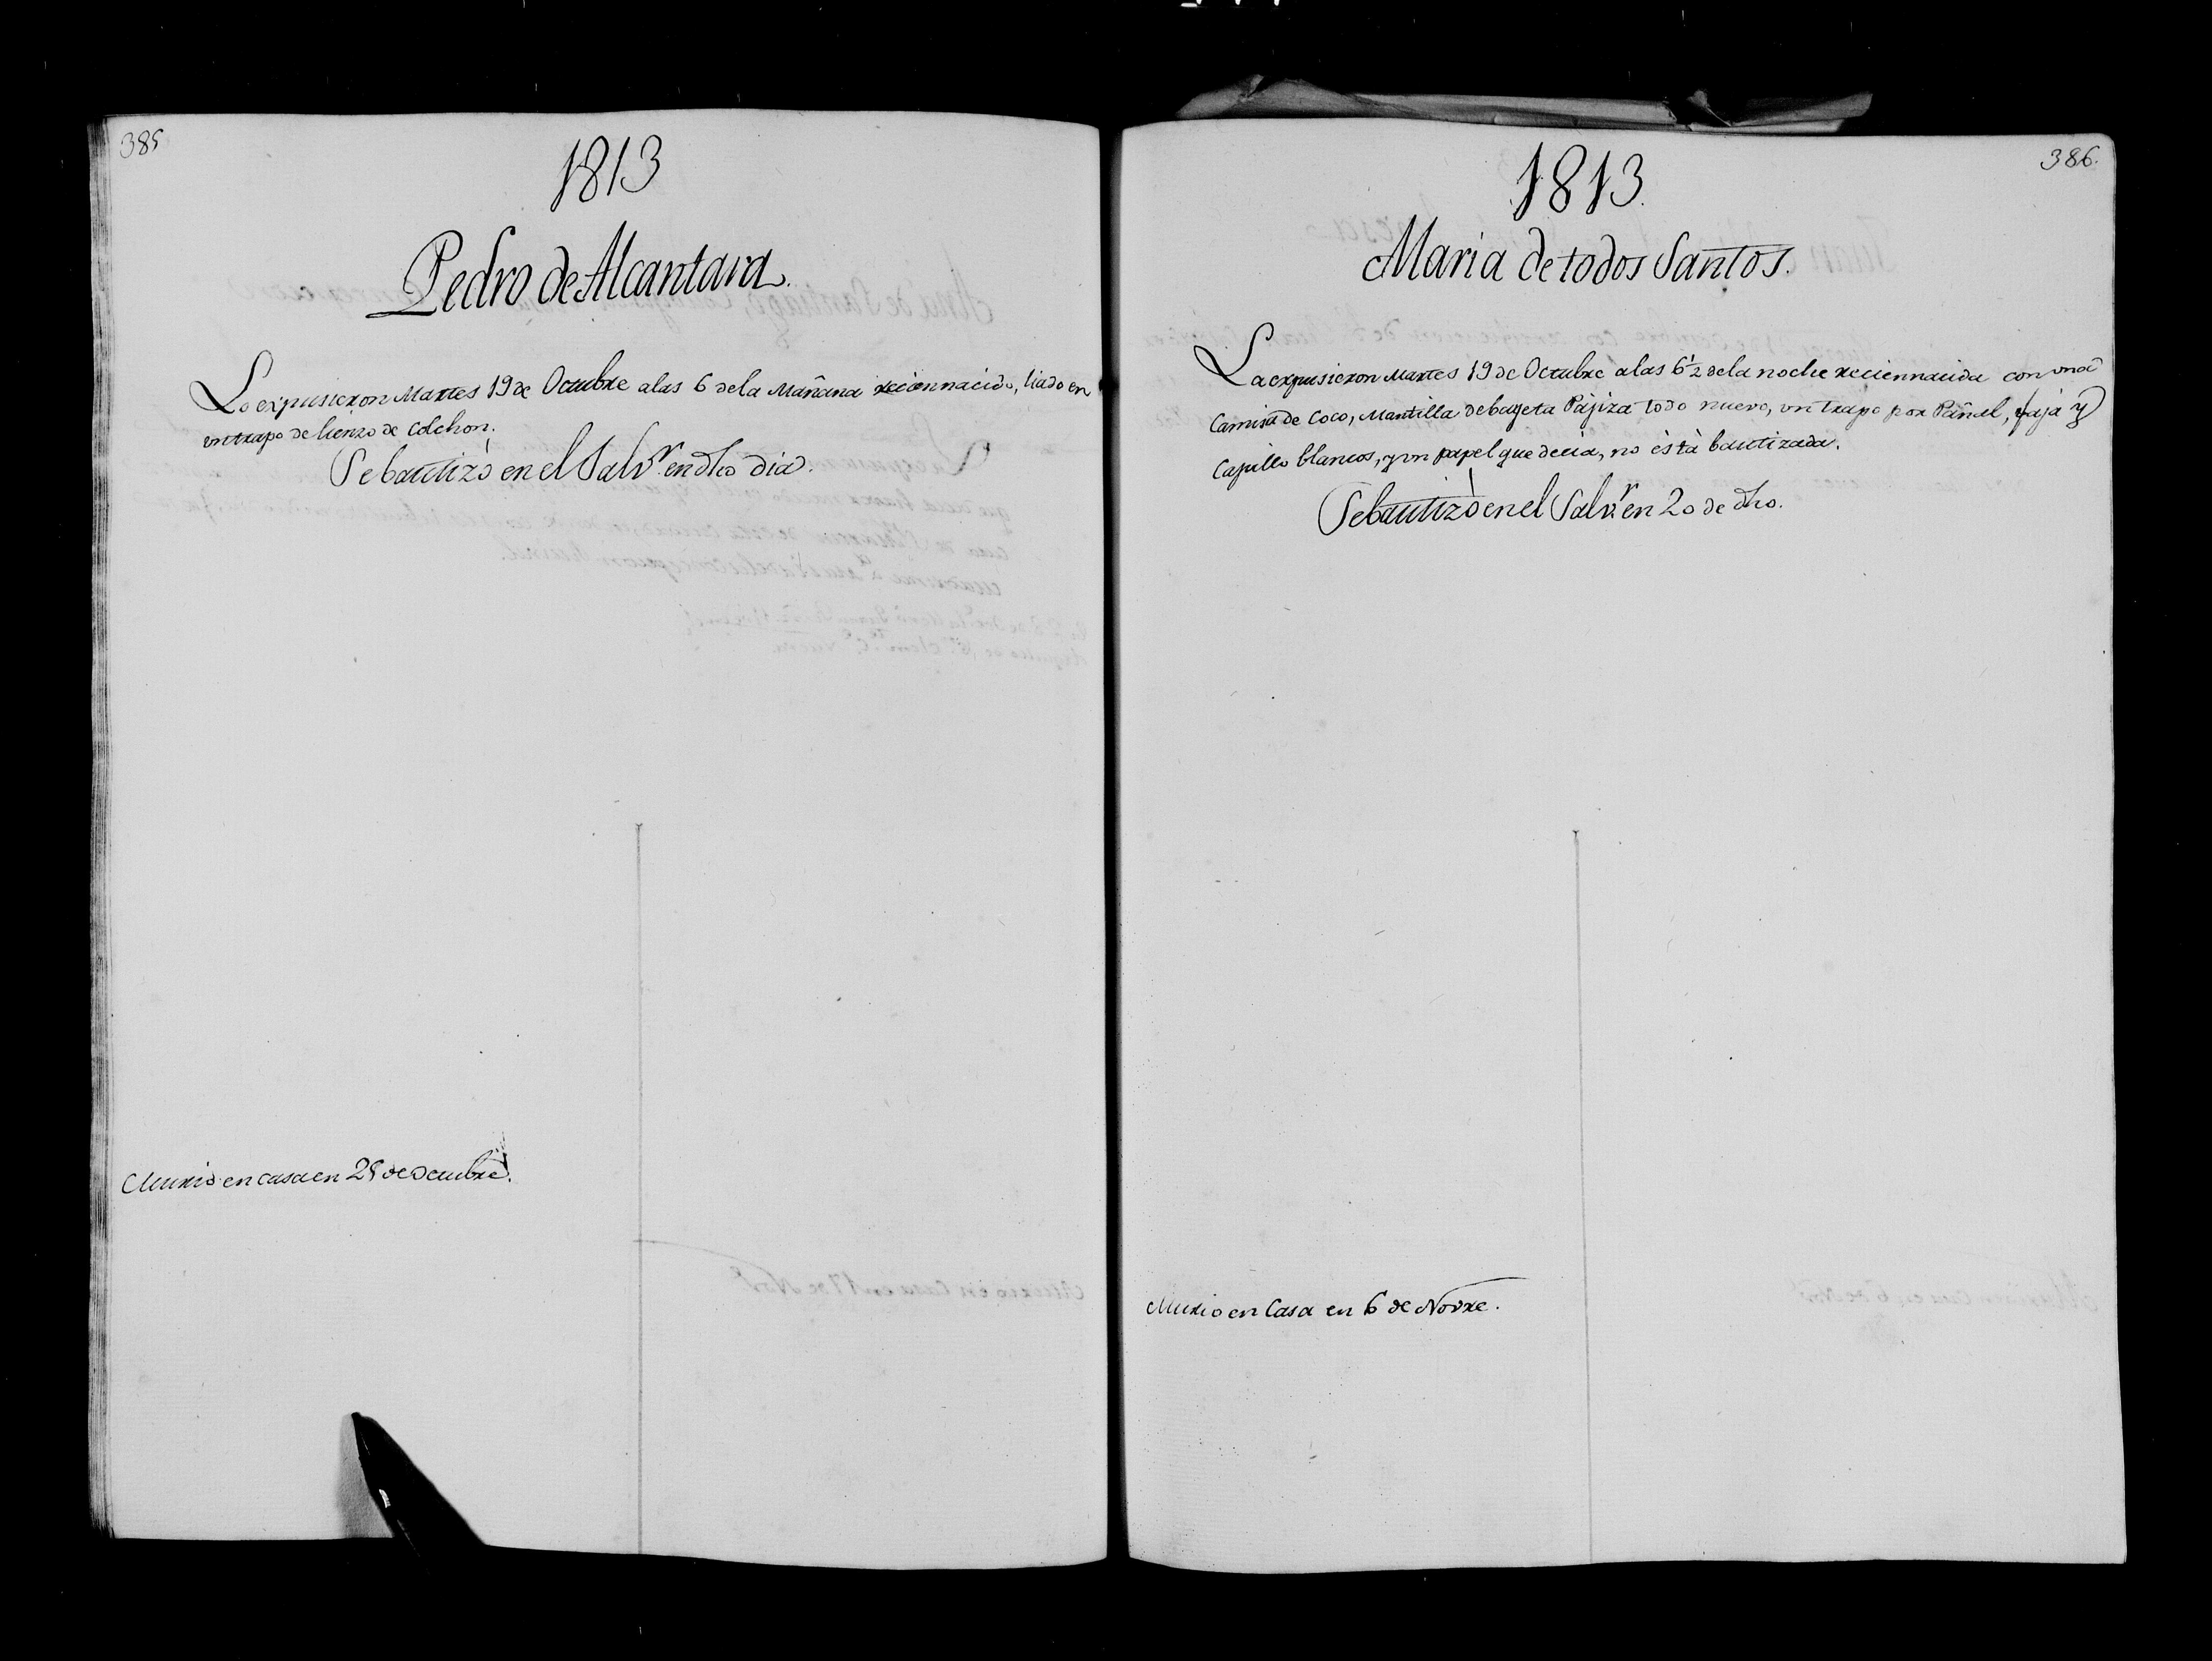 385
1813
Pedro de Alcantara.
Lo expusieron Martes 19 de Octubre a las 6 de la Mañana recien nacido, liado en
un trapo de lienzo de colchon.
Se bautizò en el Salvr. en dho dia.
Murio en casa en de Octubre.
386.
1813.
Maria de todos Santos.
La expusieron Martes 19 de Octubre a las 6½ de la noche recien nacida con una
Camisa de Coco, Mantilla de bayeta Pajiza todo nuevo, un trapo por Pañal, faja y
Capillo blancos, y un papel que decia, no està bautizada.
Se bautizò en el Salvr. en 20 de dho.
Murio en Casa en 6 de Novre.